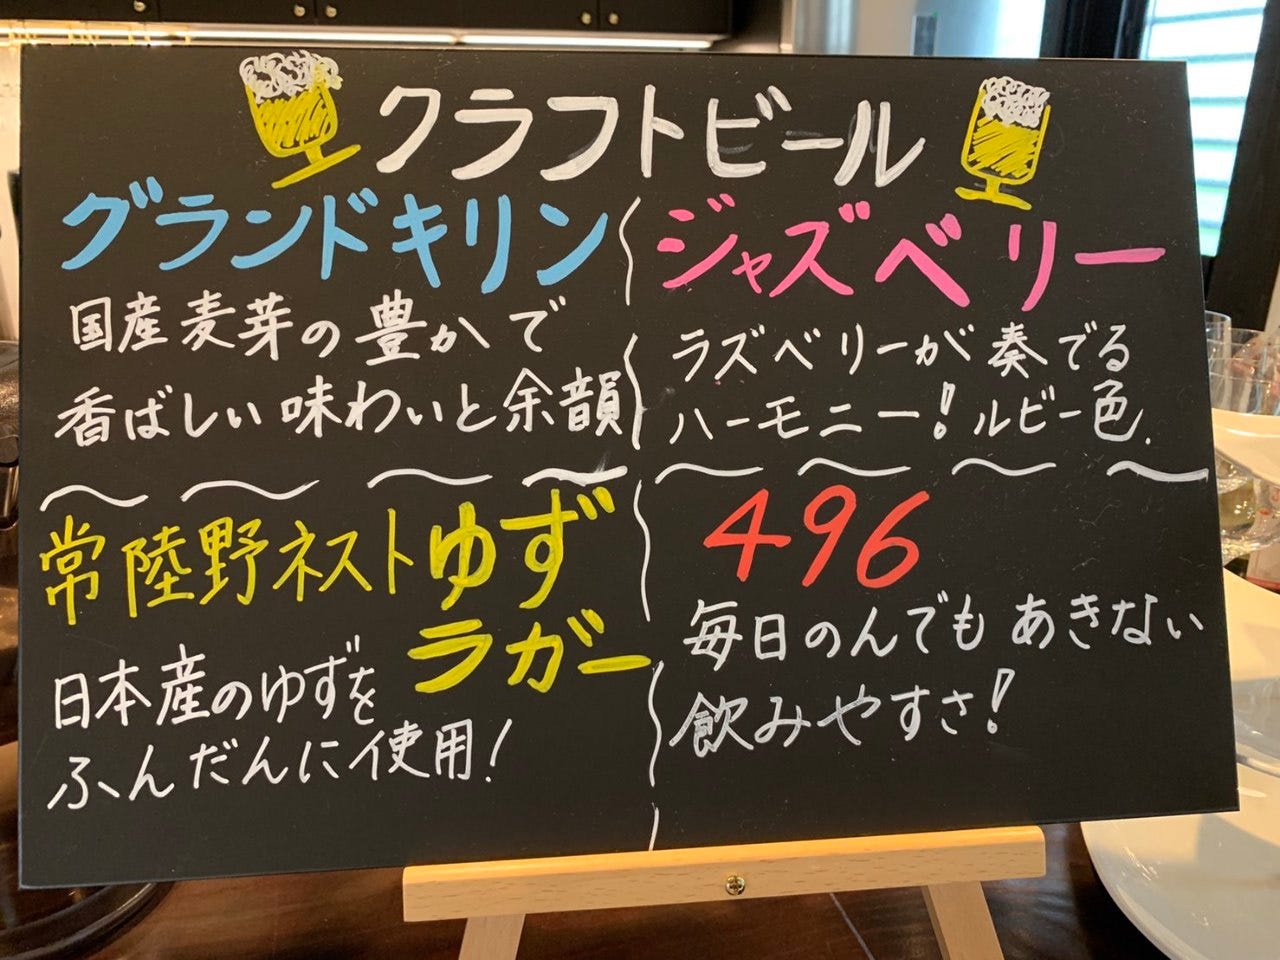 クラフトビール
グランドキリン
国産麦芽の豊かで
香ばしい味わいと余韻
ジャズベリー
ラズベリーが奏でる
ハーモニー!ルビー色.
常陸野ネストゆず
ラガー
日本産のゆずを
ふんだんに使用!
496
毎日のんでもあきない
飲みやすさ!